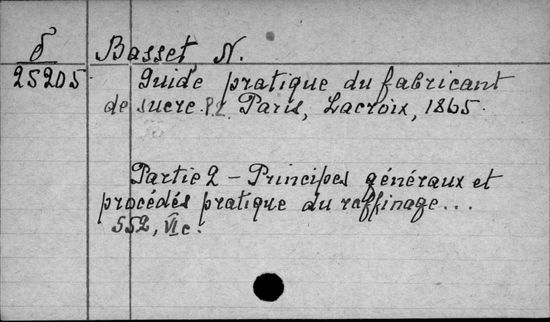 б Basset N.
25205 Guide pratique du fabricant
de sucre. P.2. Paris, Lacroix, 1865.
Partie 2 – Principes généraux et
procédés pratique du raffinage...
552, VI c.